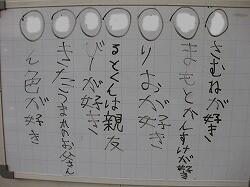 さむねが好き
まもとかんすけが好き
りおが好き
るとくんは親友
ぞーが好き
きただつまれのお父さん
ん色が好き